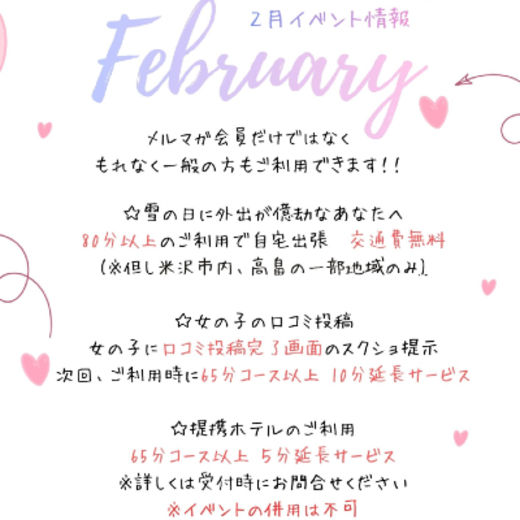 2月イベント情報
February
メルマガ会員だけではなく
もれなく一般の方もご利用できます!!
☆雪の日に外出が億劫なあなたへ
80分以上のご利用で自宅出張 交通費無料
(※但し米沢市内、高畠の一部地域のみ)
☆女の子の口コミ投稿
女の子に口コミ投稿完了画面のスクショ提示
次回、ご利用時に65分コース以上 10分延長サービス
☆提携ホテルのご利用
65分コース以上 5分延長サービス
※詳しくは受付時にお問合せください
※イベントの併用は不可